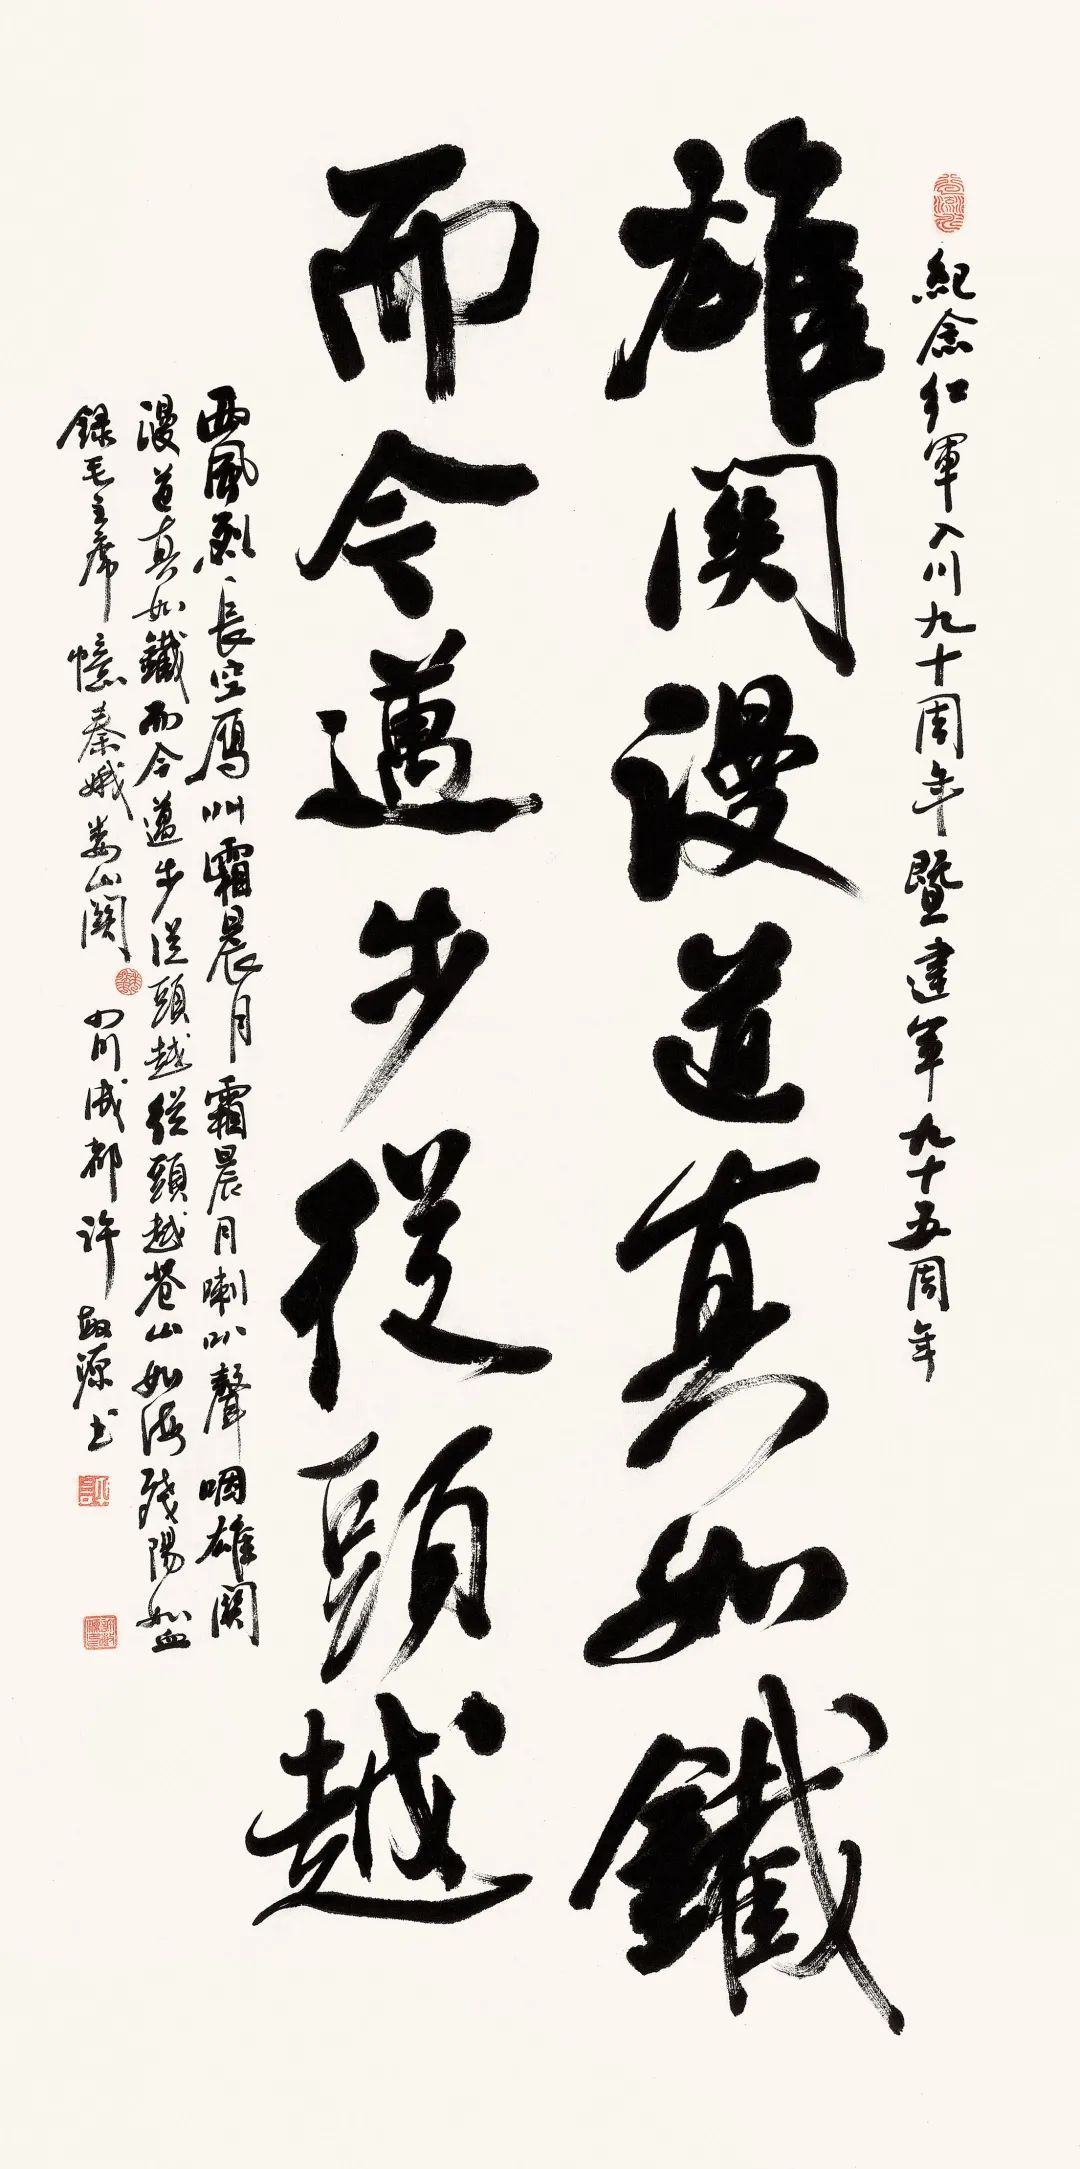 紀念红軍入川九十周年暨建軍九十五周年
雄関漫道真如鐵
而今邁步從頭越
西風烈長空雁叫霜晨月霜晨月喇叭聲咽雄関
漫道真如鐵而今邁步從頭越從頭越苍山如海殘陽如血
録毛主席憶秦娥娄山関 四川成都许源书